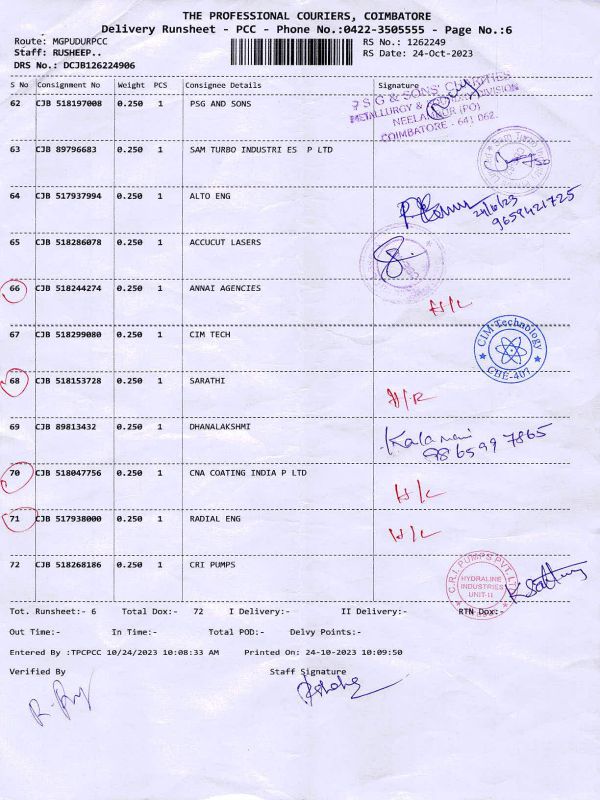 THE PROFESSIONAL COURIERS, COIMBATORE
Delivery Runsheet - PCC - Phone No.:0422-3505555 - Page No.:6
Route: MGPUDURPCC RS No.: 1262249
Staff: RUSHEEP.. RS Date: 24-Oct-2023
DRS No.: DCJB126224906
S No Consignment No Weight PCS Consignee Details Signature
62 CJB 518197008 0.250 1 PSG AND SONS
P S G & SONS' CHARITIES
METALLURGY & DIVISION
NEELAMBUR (PO)
COIMBATORE - 641 062.
63 CJB 89796683 0.250 1 SAM TURBO INDUSTRI ES P LTD
64 CJB 517937994 0.250 1 ALTO ENG
9659421725
65 CJB 518286078 0.250 1 ACCUCUT LASERS
66 CJB 518244274 0.250 1 ANNAI AGENCIES
H/L
67 CJB 518299080 0.250 1 CIM TECH
CIM Technology
CBE-407
68 CJB 518153728 0.250 1 SARATHI
H/R
69 CJB 89813432 0.250 1 DHANALAKSHMI
Kalamani
9865997865
70 CJB 518047756 0.250 1 CNA COATING INDIA P LTD
H/L
71 CJB 517938000 0.250 1 RADIAL ENG
H/L
72 CJB 518268186 0.250 1 CRI PUMPS
C.R.I. PUMPS PVT. LTD
HYDRALINE
INDUSTRIES
UNIT-II
Tot. Runsheet:- 6 Total Dox:- 72 I Delivery:- II Delivery:- RTN Dox:-
Out Time:- In Time:- Total POD:- Delvy Points:-
Entered By :TPCPCC 10/24/2023 10:08:33 AM Printed On: 24-10-2023 10:09:50
Verified By Staff Signature